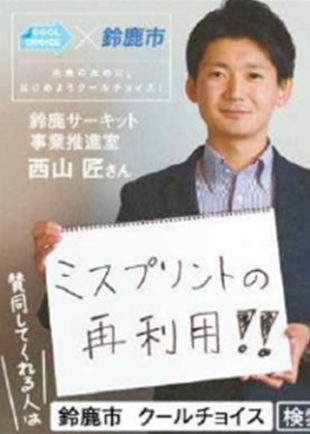 COOL
CHOICE
×鈴鹿市
未来のために、
はじめようクールチョイス！
鈴鹿サーキット
事業推進室
西山 匠さん
ミスプリントの
再利用!!
賛同してくれる人は
鈴鹿市 クールチョイス
検索